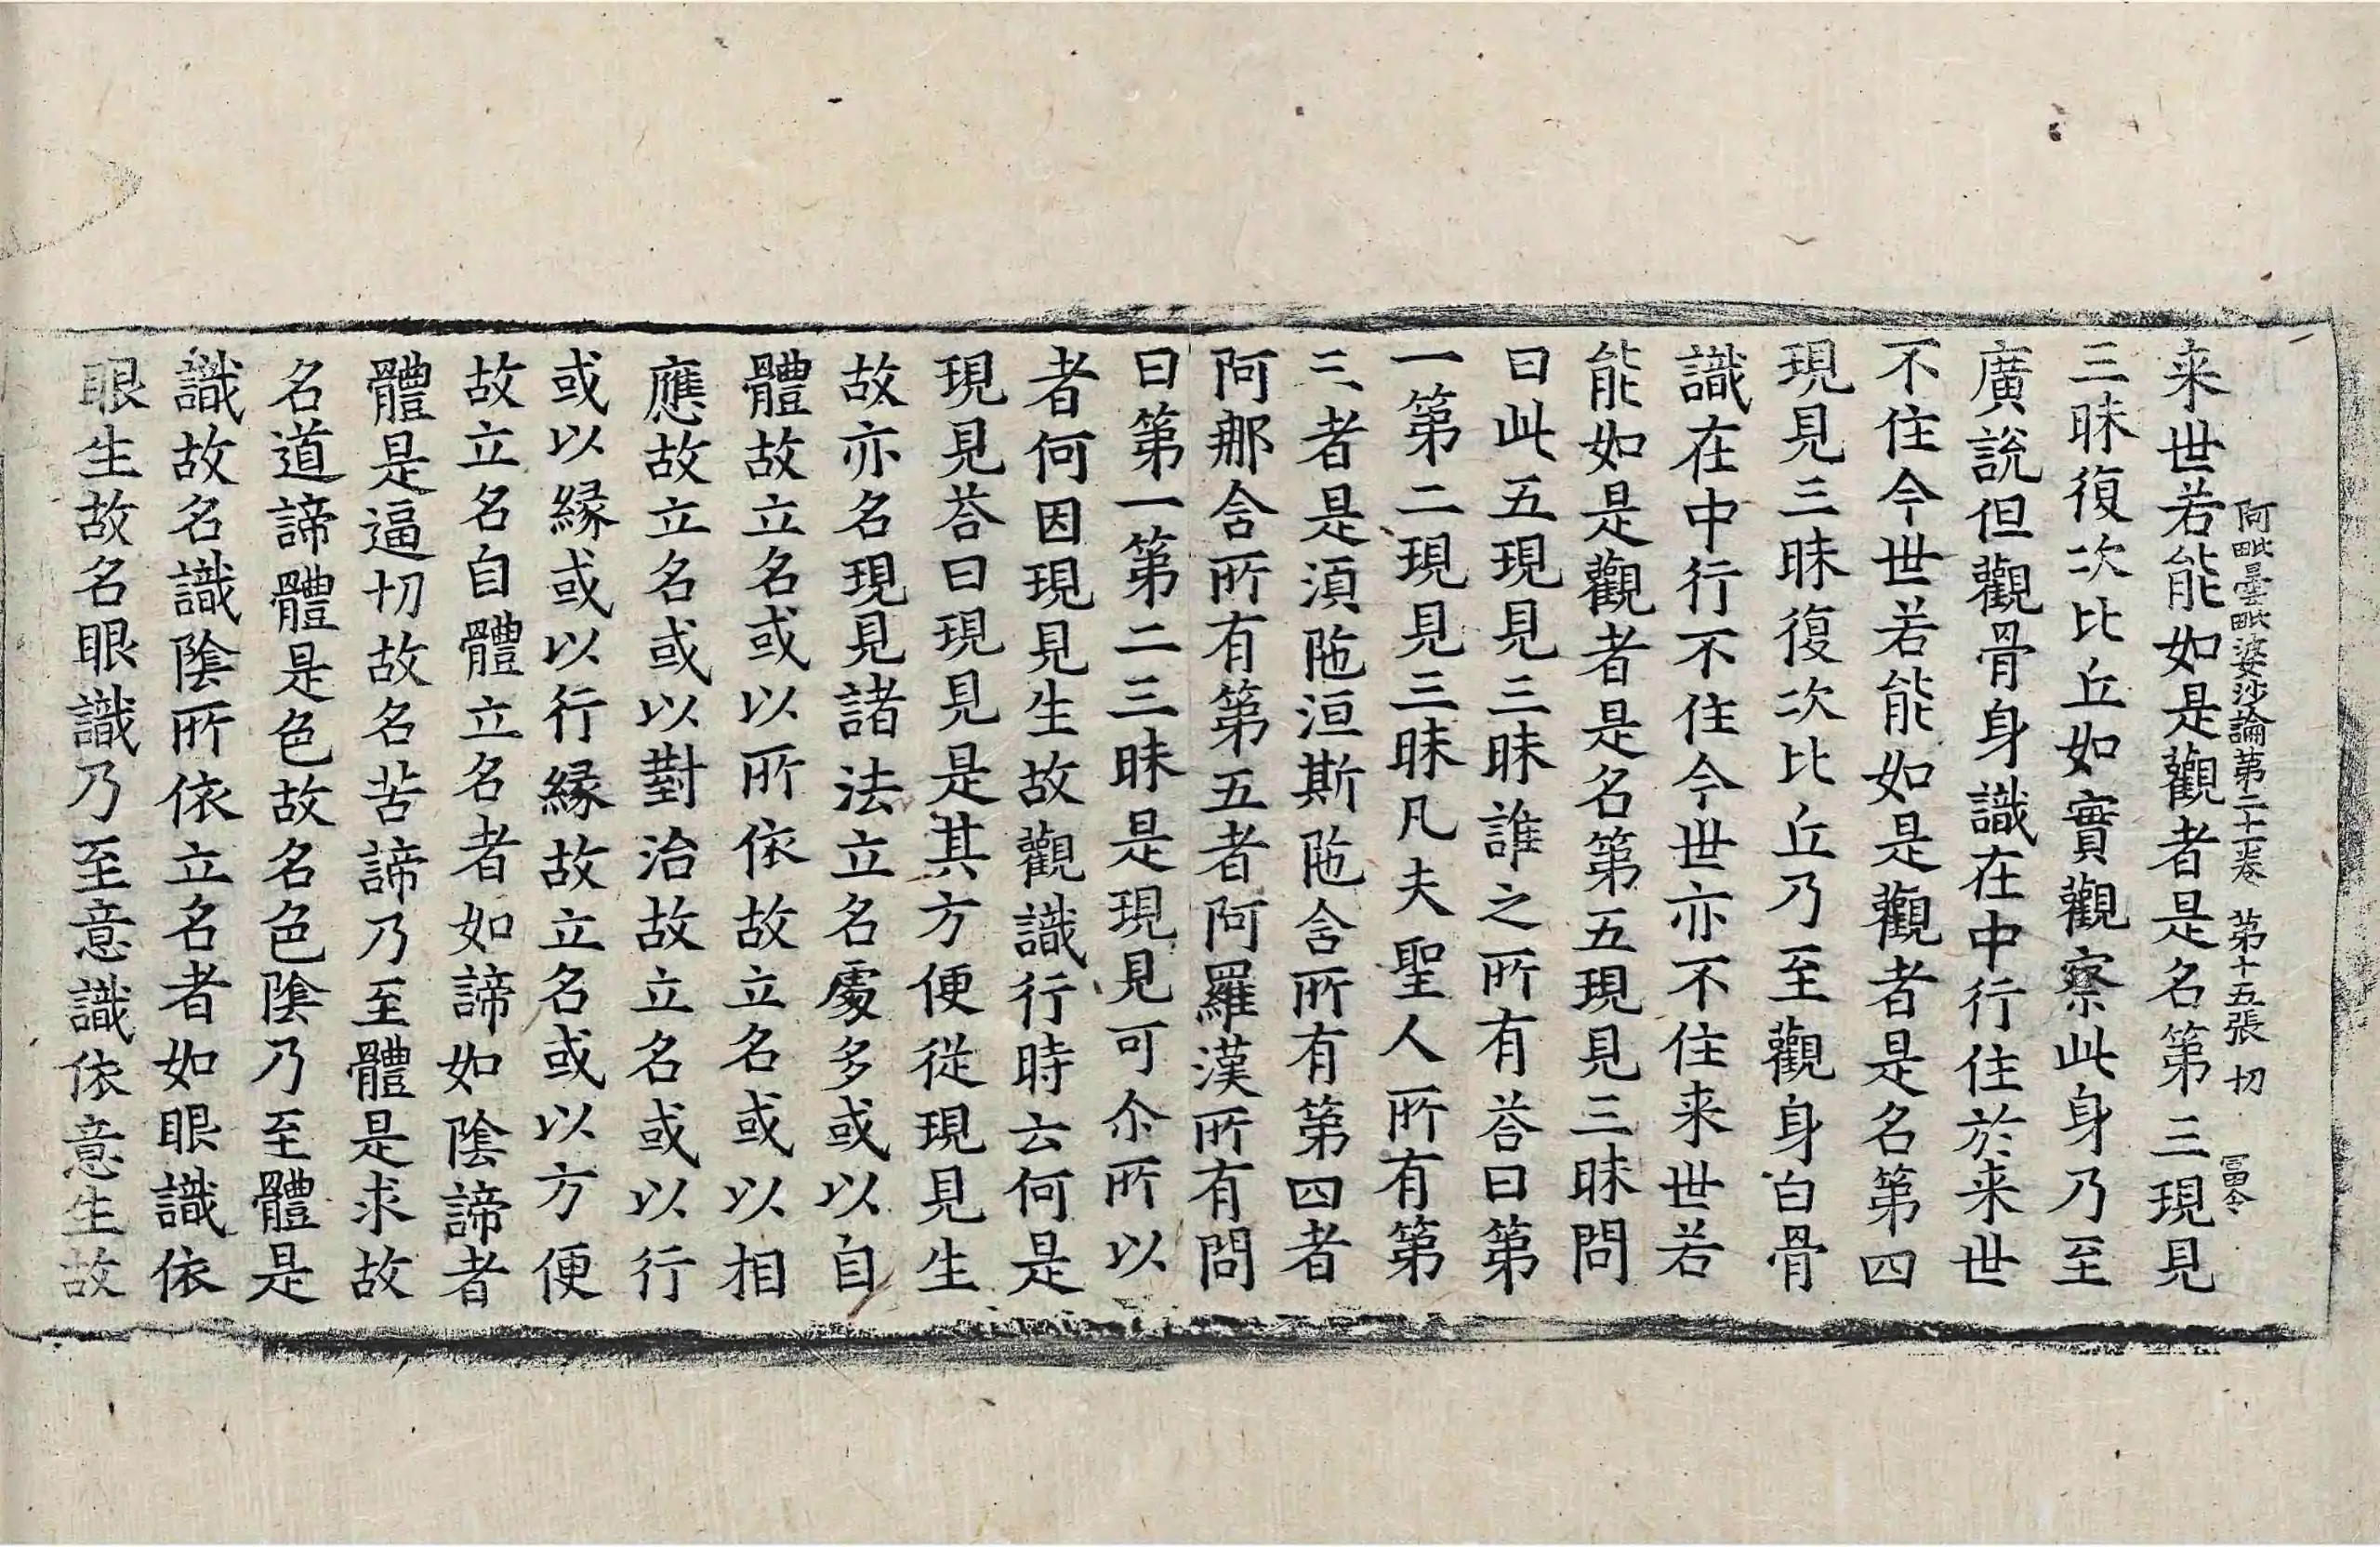 阿毗曇毗婆沙論第二十一卷　第十五張　切　冨令
来世若能如是觀者是名第三現見
三昧復次比丘如實觀察此身乃至
廣說但觀骨身識在中行住於来世
不住今世若能如是觀者是名第四
現見三昧復次比丘乃至觀身白骨
識在中行不住今世亦不住来世若
能如是觀者是名第五現見三昧問
曰此五現見三昧誰之所有荅曰第
一第二現見三昧凡夫聖人所有第
三者是湏陁洹斯陁含所有第四者
阿那含所有第五者阿羅漢所有問
曰第一第二三昧是現見可尒所以
者何因現見生故觀識行時云何是
現見荅曰現見是其方便從現見生
故亦名現見諸法立名處多或以自
體故立名或以所依故立名或以相
應故立名或以對治故立名或以行
或以縁或以行縁故立名或以方便
故立名自體立名者如諦如陰諦者
體是逼切故名苦諦乃至體是求故
名道諦體是色故名色陰乃至體是
識故名識陰所依立名者如眼識依
眼生故名眼識乃至意識依意生故